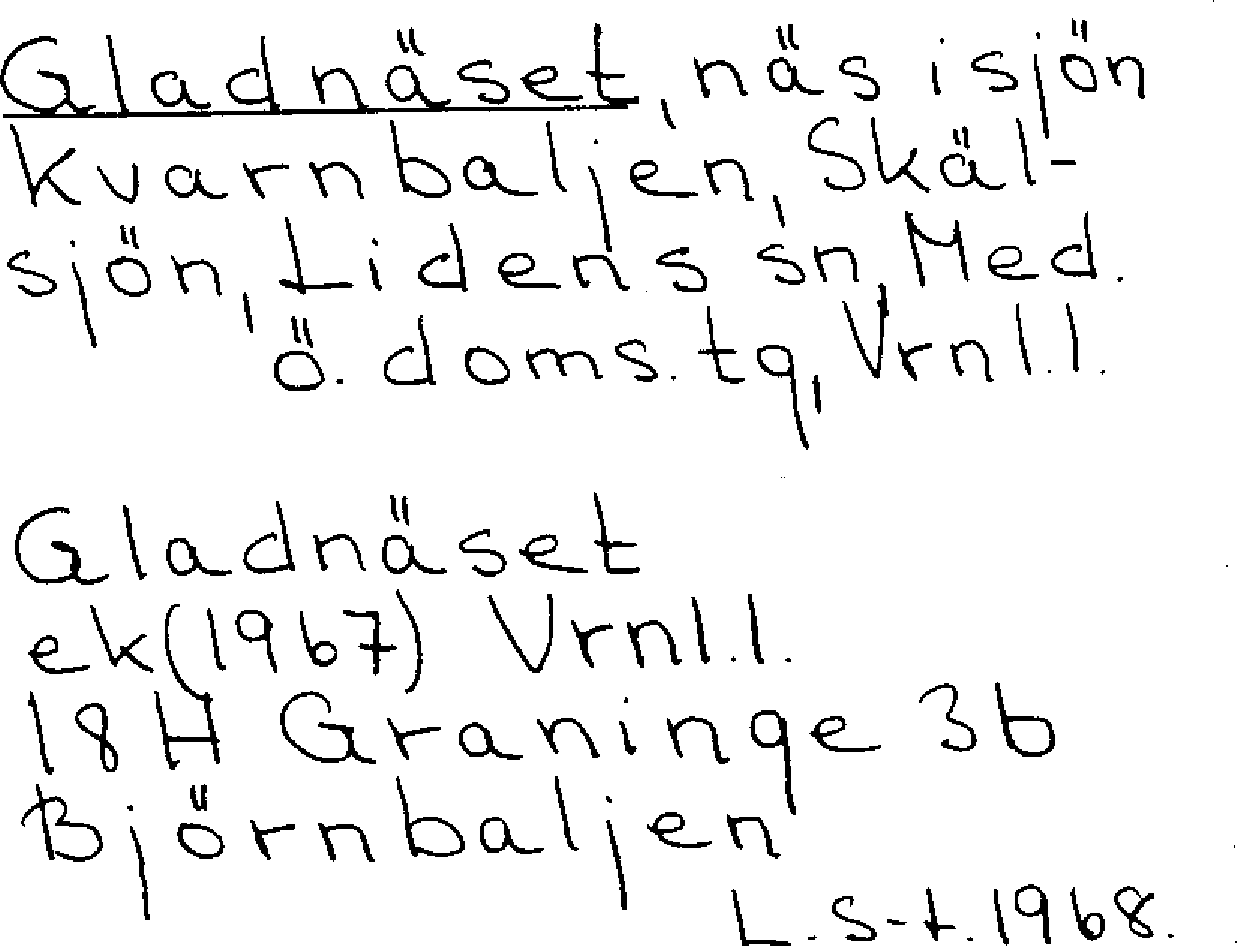 Gladnäset, näs i sjön
Kvarnbaljen, Skäl-
sjön, Lidens sn, Med.
ö. doms. tg, Vrnl.l.
Gladnäset
ek (1967) Vrnl.l.
18 H Graninge 3b
Björnbaljen
L. S-t. 1968.